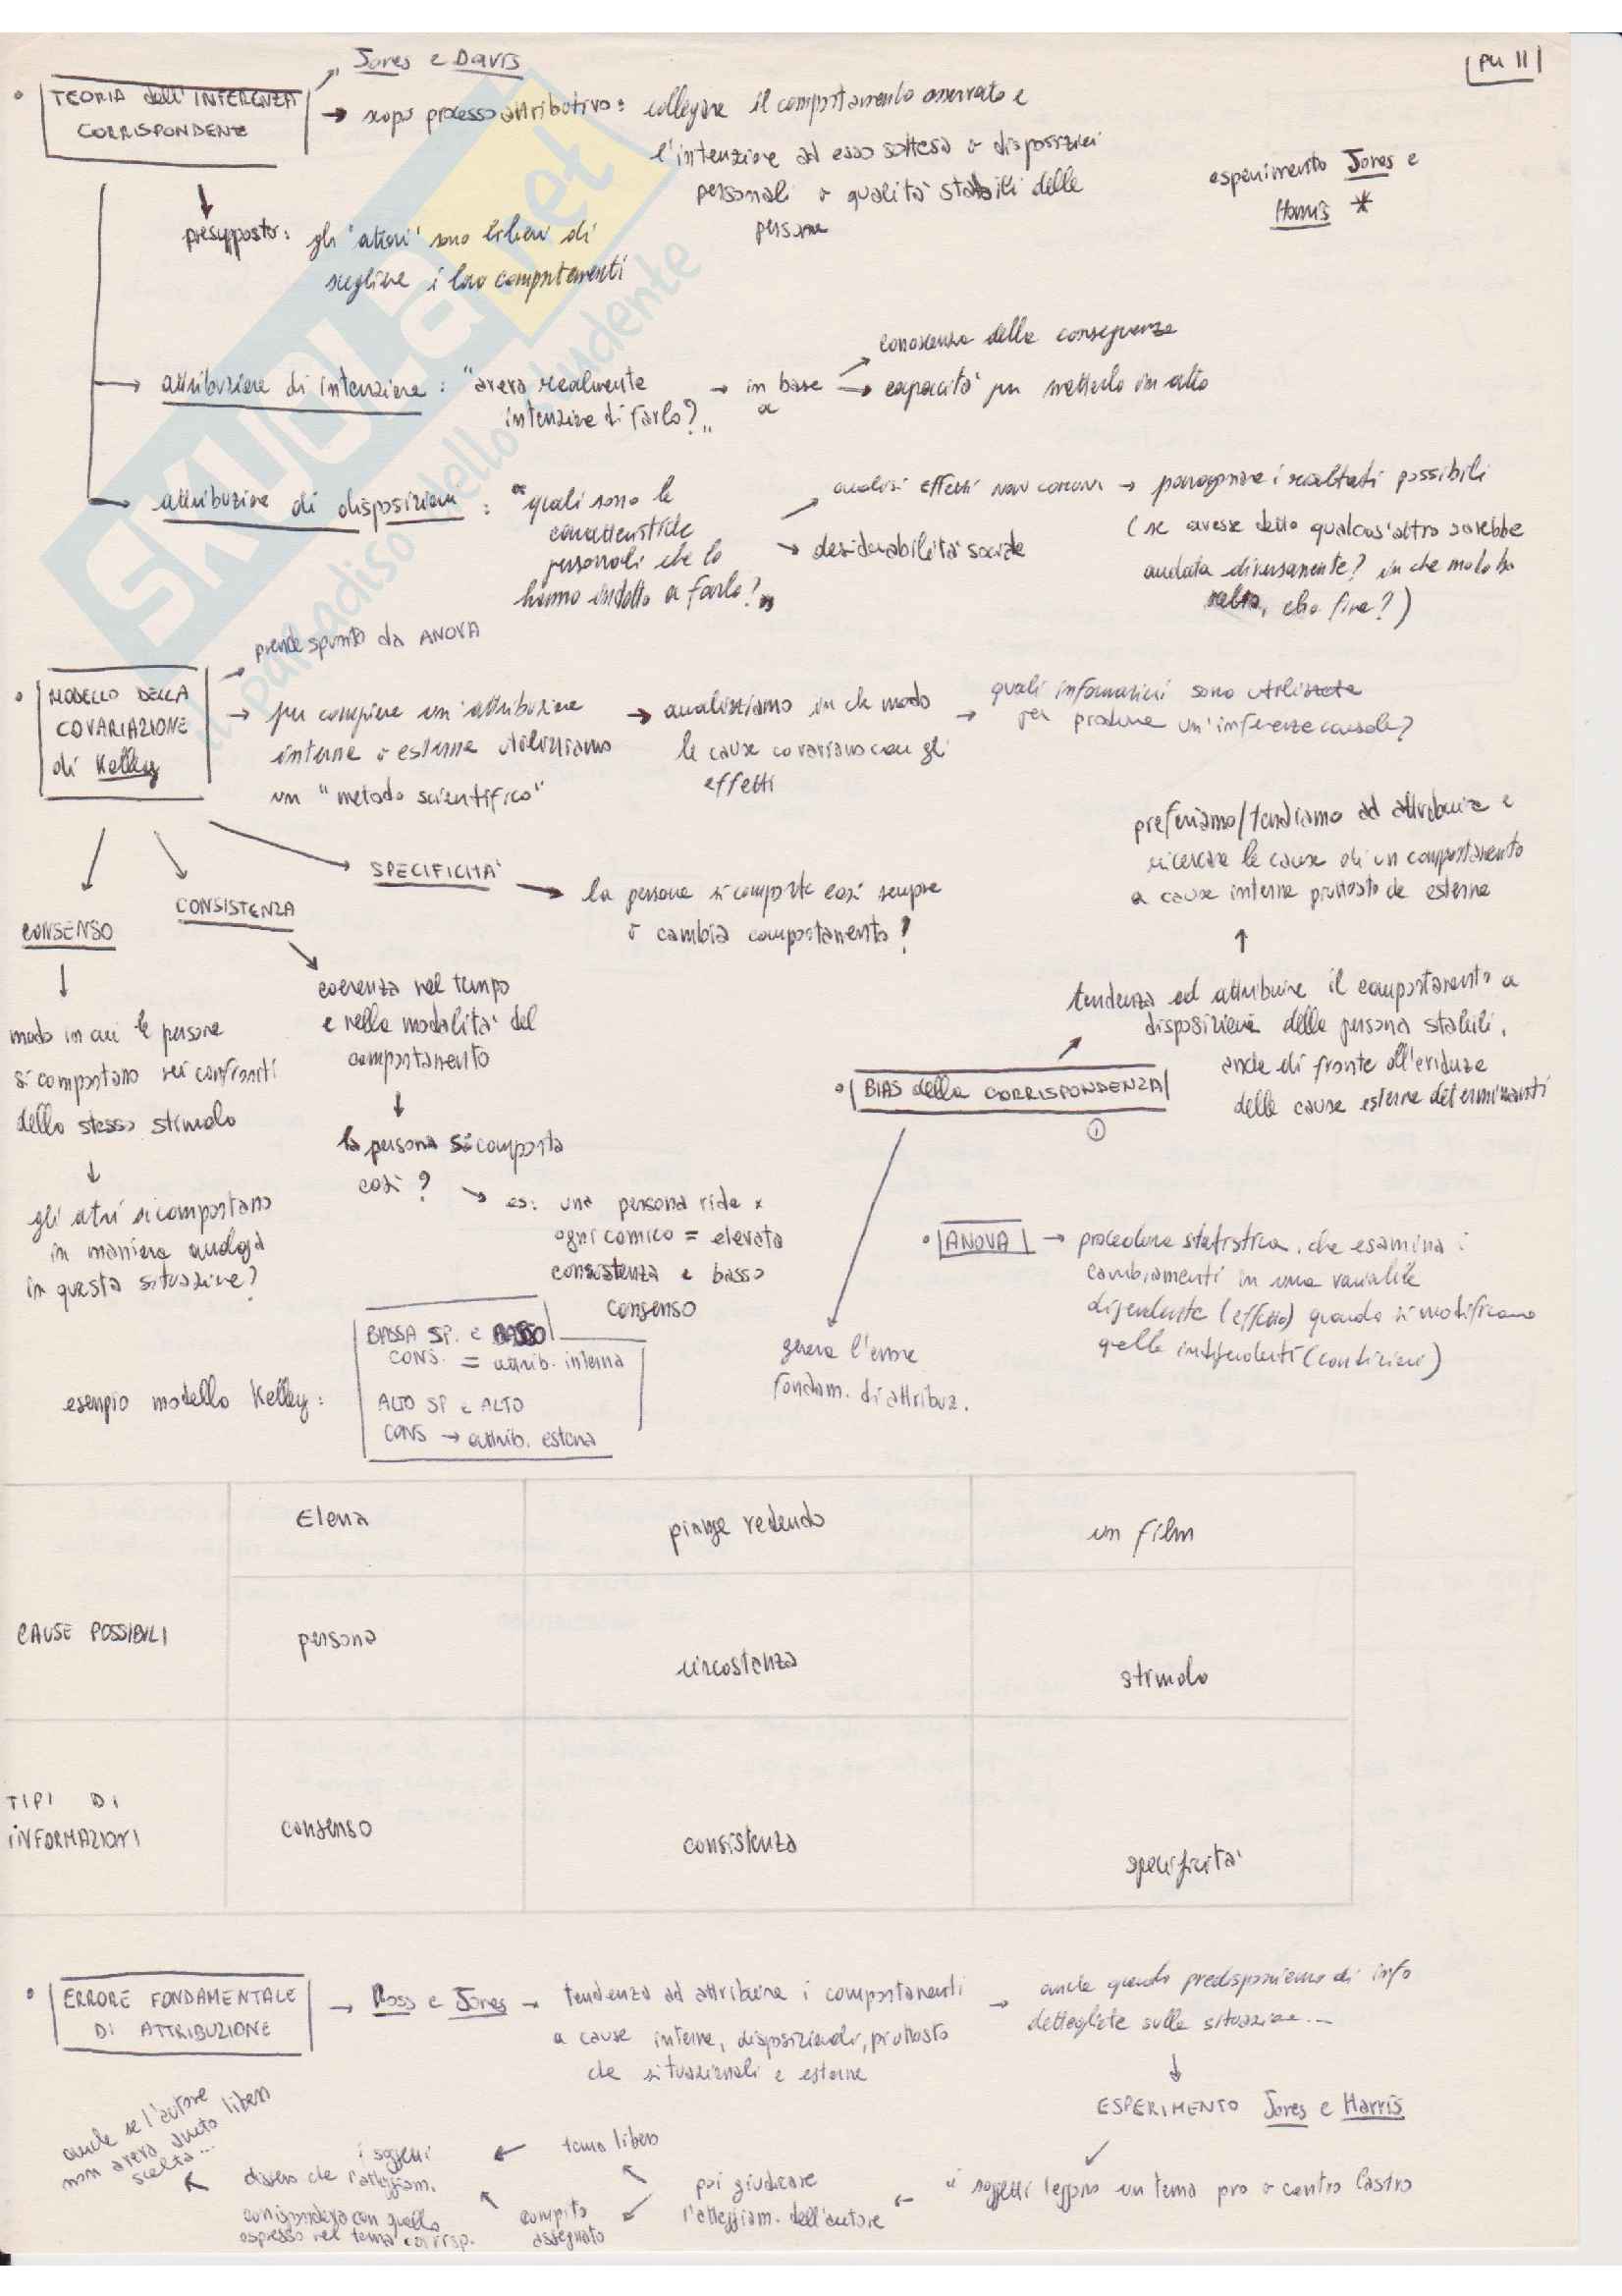 PU 11
Jones e Davis
TEORIA dell'INFERENZA
CORRISPONDENTE
→ scopo processo attributivo: collegare il comportamento osservato e
l'intenzione ad esso sottesa o disposizioni
personali o qualità stabili delle
persone
esperimento Jones e
Harris *
presupposto: gli 'attori' sono liberi di
scegliere i loro comportamenti
→ attribuzione di intenzione: "aveva realmente
intenzione di farlo?"
→ in base
a
conoscenza delle conseguenze
→ capacità per metterlo in atto
→ attribuzione di disposizioni: "quali sono le
caratteristiche
personali che lo
hanno indotto a farlo?"
analisi effetti non comuni → paragonare i risultati possibili
(se avesse detto qualcos'altro sarebbe
andata diversamente? in che modo ho
scelto, che fine?)
→ desiderabilità sociale
prende spunto da ANOVA
MODELLO DELLA
COVARIAZIONE
di Kelley
→ per compiere un'attribuzione
interna o esterna utilizziamo
un "metodo scientifico"
→ analizziamo in che modo
le cause covariano con gli
effetti
→ quali informazioni sono utilizzate
per produrre un'inferenza causale?
SPECIFICITA'
→ la persona si comporta così sempre
o cambia comportamento?
CONSISTENZA
coerenza nel tempo
e nella modalità del
comportamento
la persona si comporta
così?
→ es: una persona ride x
ogni comico = elevata
consistenza e basso
consenso
CONSENSO
modo in cui le persone
si comportano nei confronti
dello stesso stimolo
gli altri si comportano
in maniera analoga
in questa situazione?
preferiamo/tendiamo ad attribuire e
ricercare le cause di un comportamento
a cause interne piuttosto che esterne
tendenza ad attribuire il comportamento a
disposizioni della persona stabili,
anche di fronte all'evidenza
delle cause esterne determinanti
BIAS della CORRISPONDENZA
①
genera l'errore
fondam. di attribuz.
ANOVA → procedura statistica, che esamina i
cambiamenti in una variabile
dipendente (effetto) quando si modificano
quelle indipendenti (condizioni)
esempio modello Kelley:
BASSA SP. e BASSO
CONS. = attrib. interna
ALTO SP e ALTO
CONS → attrib. esterna
Elena
piange vedendo
un film
CAUSE POSSIBILI
persona
circostanza
stimolo
TIPI DI
INFORMAZIONI
consenso
consistenza
specificità
ERRORE FONDAMENTALE
DI ATTRIBUZIONE
→ Ross e Jones → tendenza ad attribuire i comportamenti
a cause interne, disposizionali, piuttosto
che situazionali e esterne
→ anche quando predisponiamo di info
dettagliate sulla situazione...
ESPERIMENTO Jones e Harris
i soggetti leggono un tema pro o contro Castro
poi giudicare
l'atteggiam. dell'autore
tema libero
compito
assegnato
i soggetti
dissero che l'atteggiam.
corrispondeva con quello
espresso nel tema corrisp.
anche se l'autore
non aveva avuto libera
scelta...
SKUOLA.net
il paradiso dello studente